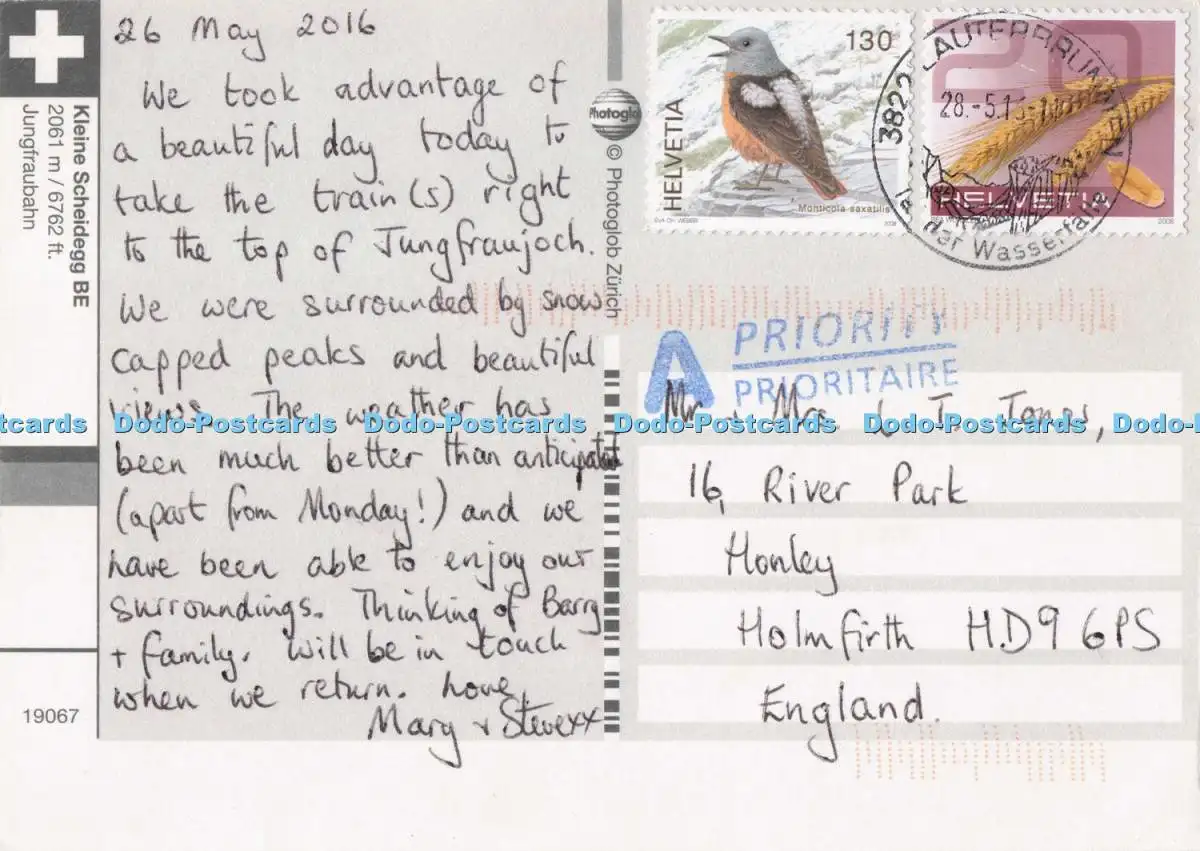 26 May 2016
We took advantage of
a beautiful day today to
take the train(s) right
to the top of Jungfraujoch.
We were surrounded by snow
capped peaks and beautiful
views. The weather has
been much better than anticipated
(apart from Monday!) and we
have been able to enjoy our
surroundings. Thinking of Barry
+ family. Will be in touch
when we return. Love,
Mary + Steve xx
Kleine Scheidegg BE
2061 m / 6762 ft.
Jungfraubahn
19067
Photoglob
© Photoglob Zürich
130
HELVETIA
Monticola saxatilis
2008
20
HELVETIA
2008
3822 LAUTERBRUNNEN
28.-5.1
der Wasserfälle
A PRIORITY
PRIORITAIRE
Mr + Mrs L J Jones,
16, River Park
Honley
Holmfirth HD9 6PS
England.
Dodo-Postcards Dodo-Postcards Dodo-Postcards Dodo-Postcards